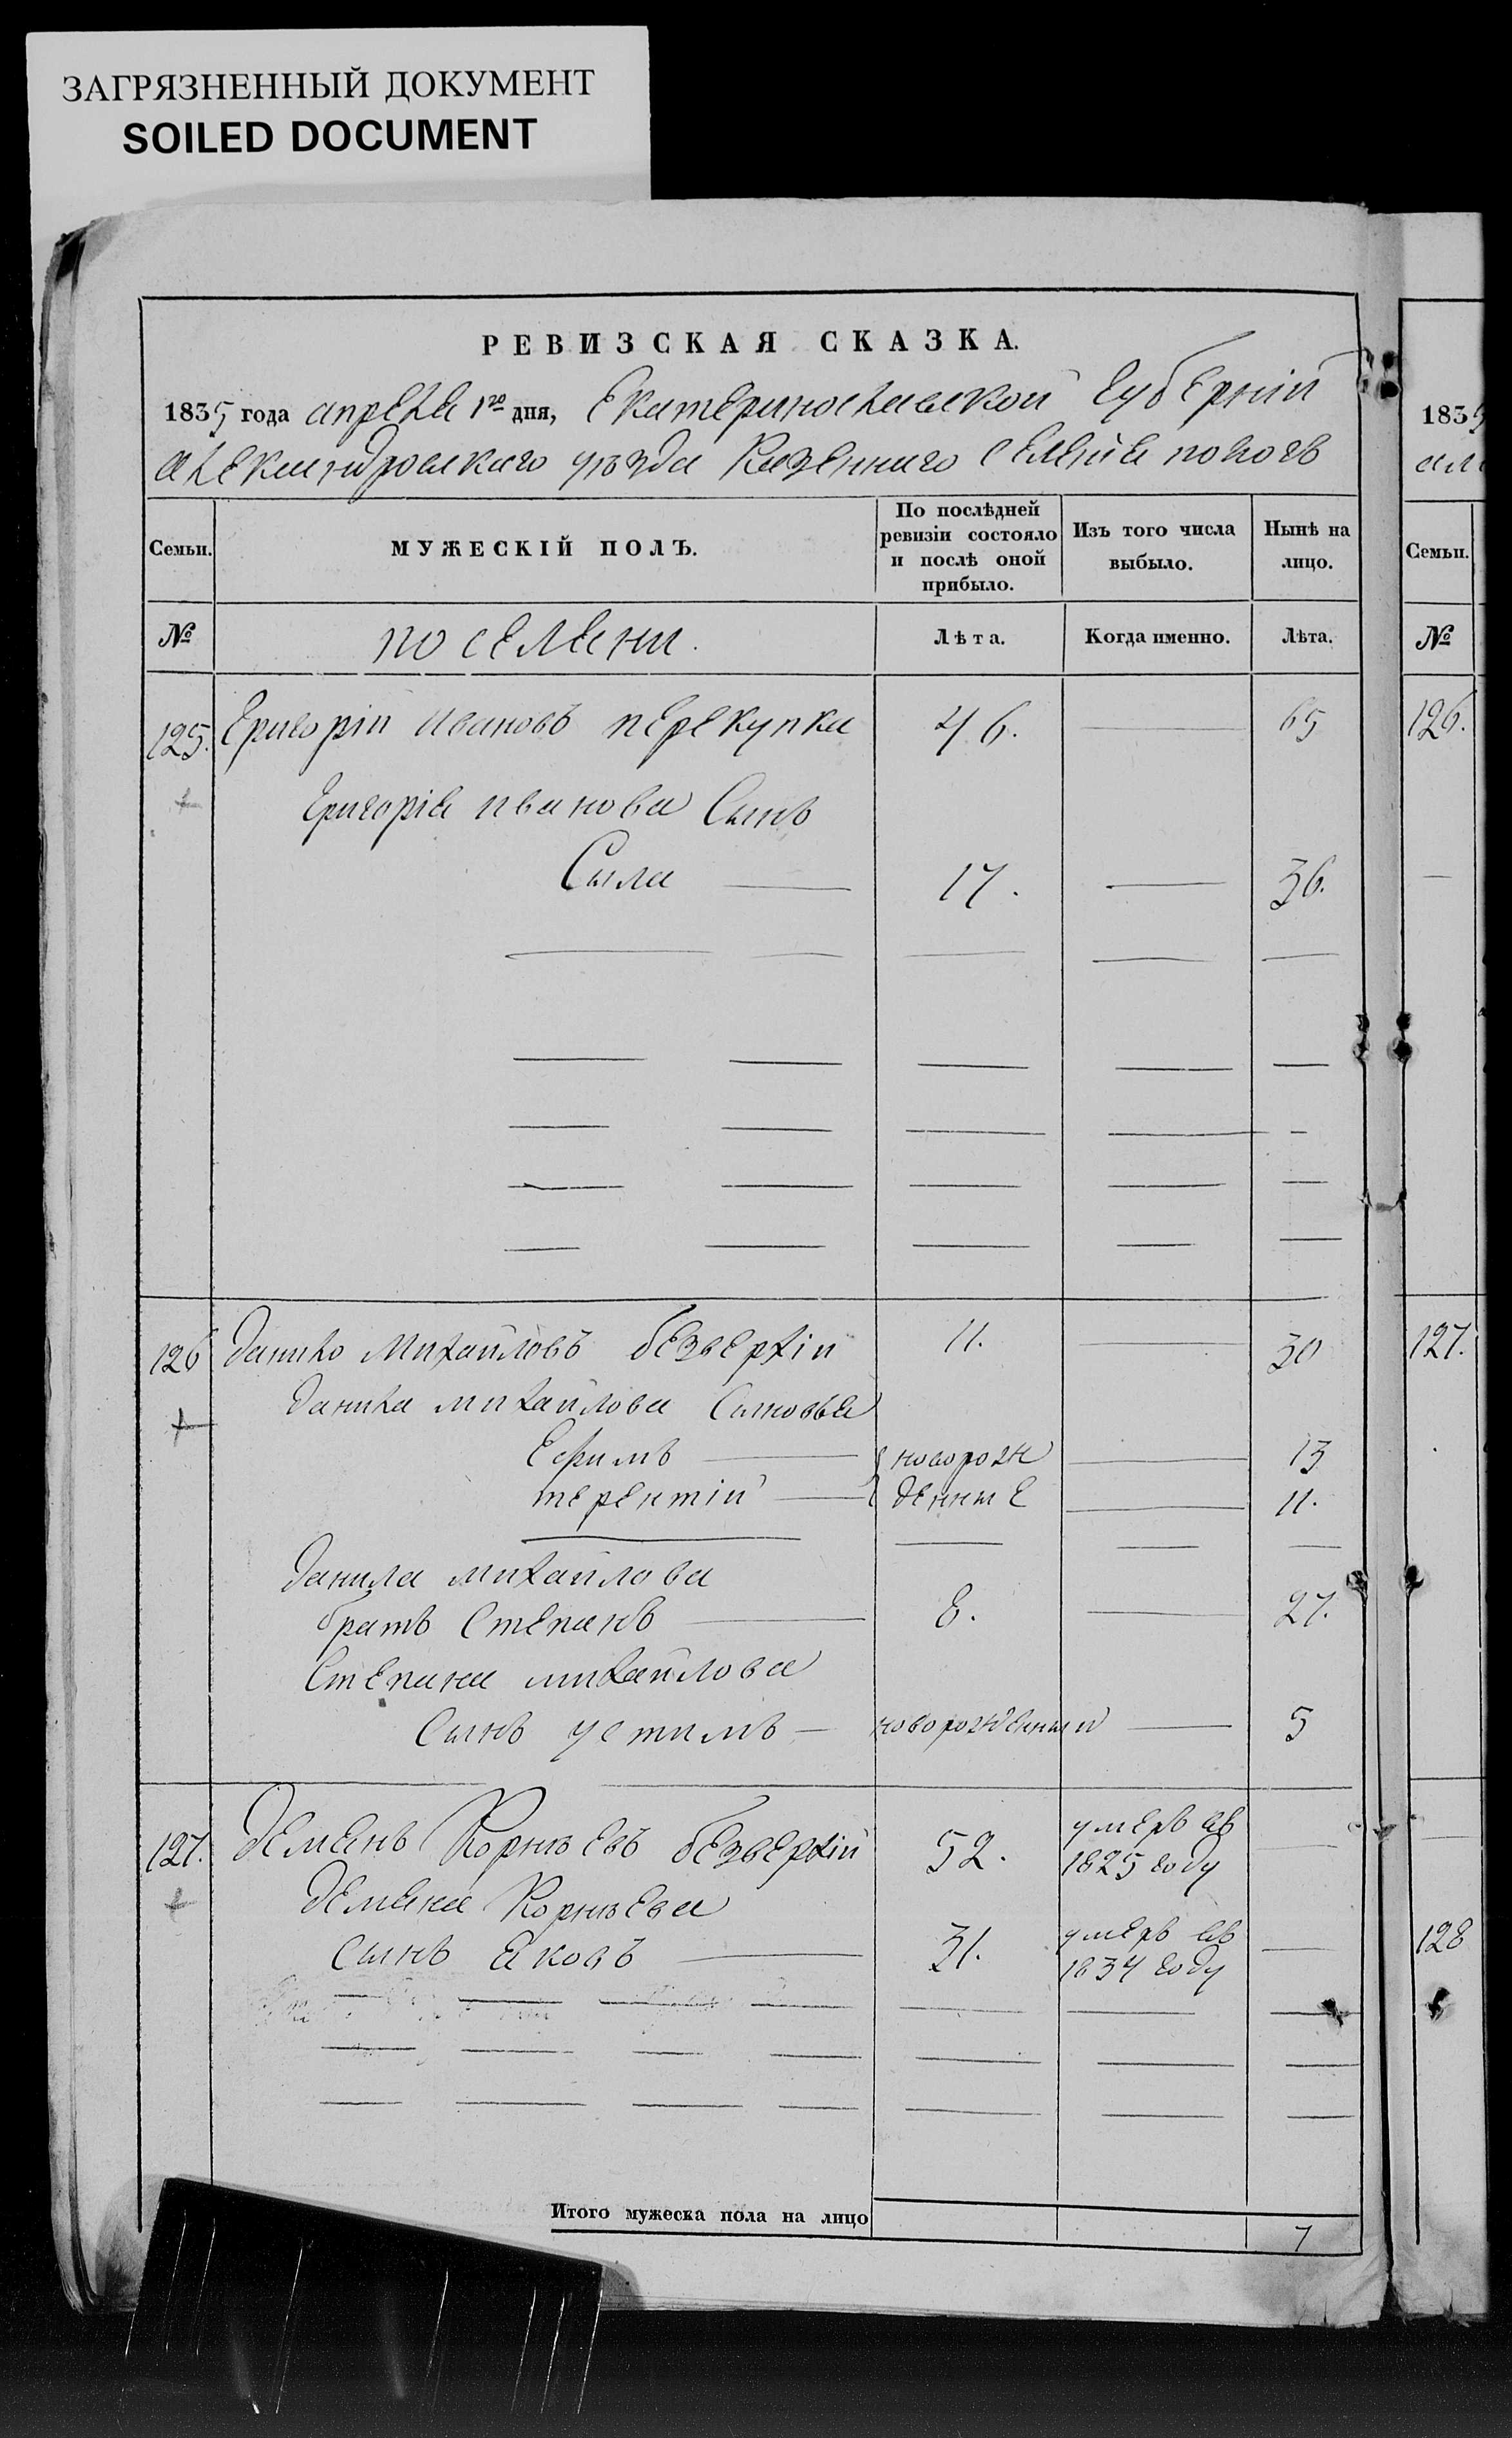 ЗАГРЯЗНЕННЫЙ ДОКУМЕНТ
SOILED DOCUMENT
РЕВИЗСКАЯ СКАЗКА.
1835 года апреля 1го дня, Екатеринославской губерній
александровскаго уезда Казеннаго селенія пологъ
Семьи.
МУЖЕСКІЙ ПОЛЪ.
По послѣдней ревизіи состояло и послѣ оной прибыло.
Изъ того числа выбыло.
Нынѣ на лицо.
№
поселяни.
Лѣта.
Когда именно.
Лѣта.
125. Григорій Ивановъ перекупка 46. 65
Григорія иванова Сынъ
Сыла 17. 36.
126 данило Михайловъ безверхій 11. 30
данила михайлова Сыновья
Ефимъ новорож 13
терентій денные 11.
данила михайлова
братъ Степанъ 8. 27.
Степана михайлова
Сынъ устимъ новорожденный 5
127. демянъ Корнѣевъ безверхій 52. умеръ въ 1825 году
демяна Корнѣева
сынъ яковъ 31. умеръ въ 1834 году
Итого мужеска пола на лицо 7
1835
Семьи.
№
126.
127.
128